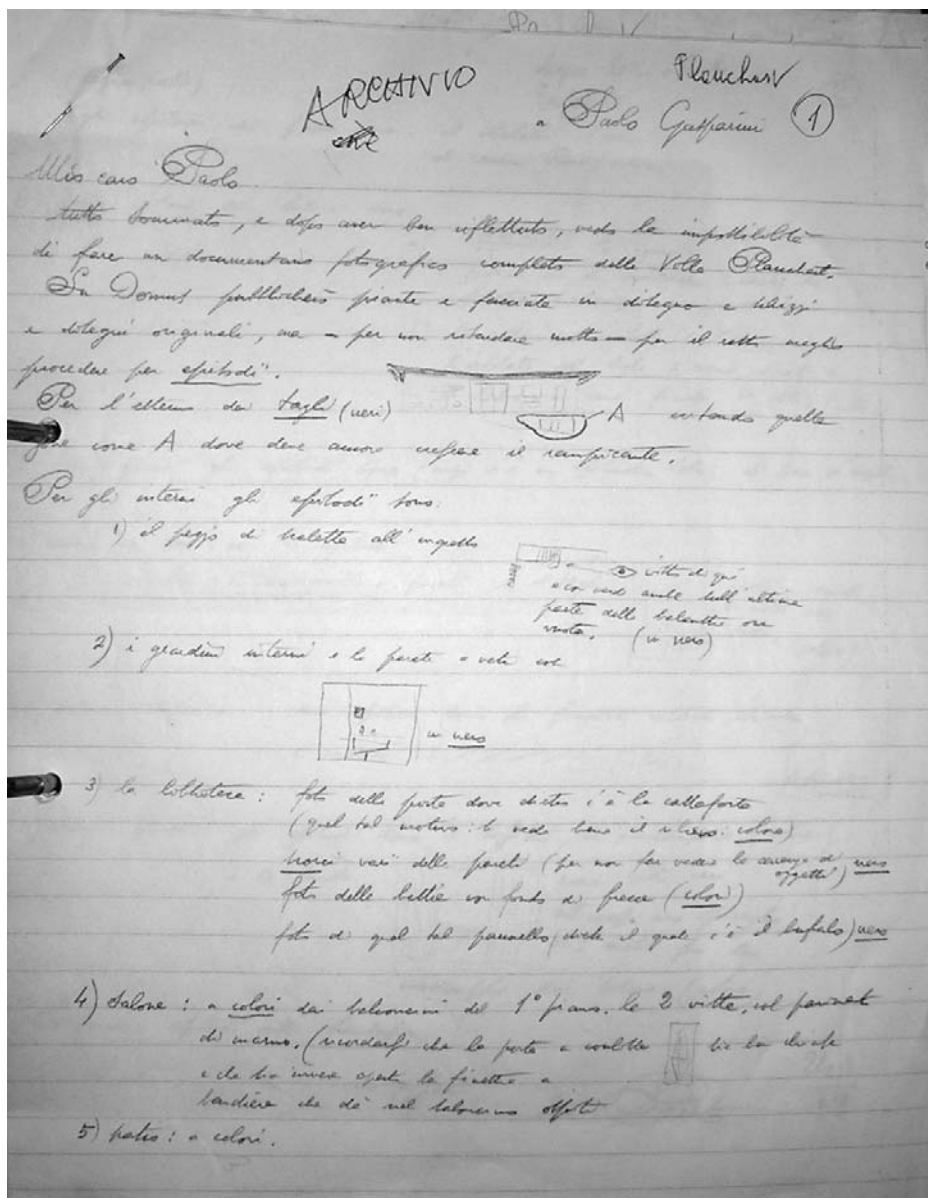 Planchart
ARCHIVIO
a Paolo Gasparini 1
Mio caro Paolo
tutto sommato, e dopo aver ben riflettuto, vedo la impossibilità
di fare un documentario fotografico completo della Villa Planchart.
Su Domus pubblicherò piante e facciate in disegno e schizzi
e disegni originali, ma – per non ritardare molto – per il resto meglio
procedere per episodi.
Per l'esterno dei tagli (neri) A intendo quella
come A dove deve ancora crescere il rampicante.
Per gli interni gli episodi sono:
1) il pezzo di scaletta all'ingresso
vista di qui
parte della
vuota. (in nero)
2) i giardini interni e la parete a
in nero
3) la biblioteca: foto della porta dove dietro c'è la cassaforte
(quel tal motivo: si vede bene il rilievo: colore)
vari delle pareti (per non far vedere la di
oggetti) nero
foto delle con fondo di (colori)
foto di quel tal pannello (dietro il quale c'è il bufalo) nero
4) Salone: a colori dai balconcini del 1° piano, le 2 viste, col
di marmo. (ricordarsi che la porta a sia ben chiusa
e che sia invece aperta la finestra a
bandiera che dà nel balconcino
5) patio: a colori.